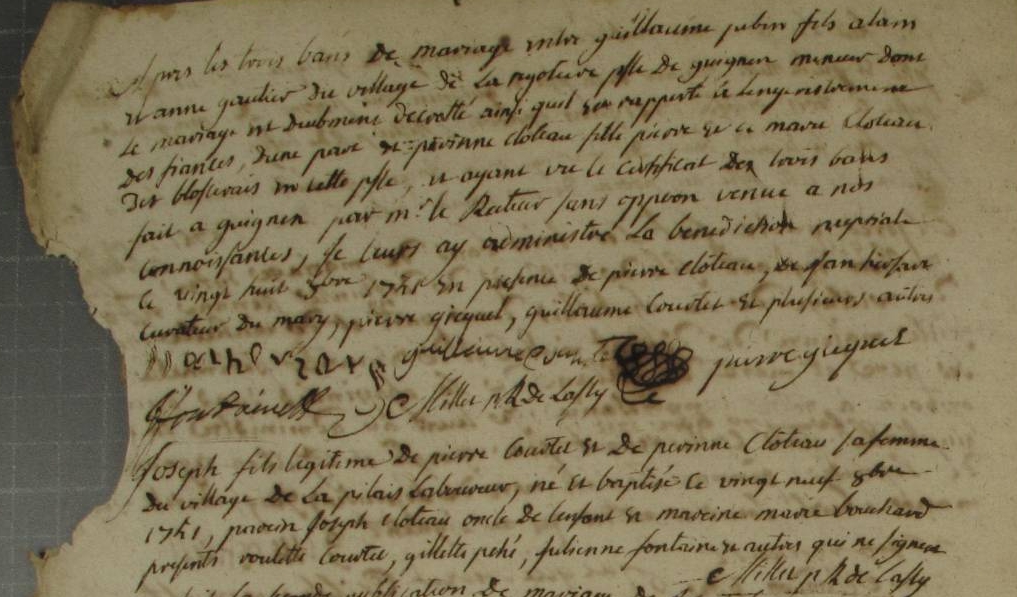 Apres les trois bans de mariage entre guillaume jubin fils alain
et anne gaulier du village de La rigotiere psse de guignen mineur dont
le mariage est deubment decrotté ainsi quil est rapporté a lengeristrement
des fiances, dune part et perinne cloteau fille pierre et de marie Cloteau
des blosserais en cette psse, et ayant vu le Certificat des trois bans
fait a guignen par mr le Recteur sans oppoon venue a nos
Connoissances, Je leurs ay administré La benediction nuptiale
Ce vingt huit 1741 En presence de pierre cloteau, de Jan
Curateur du mary, pierre grequel, guillaume Courtel et plusieurs autres
guillaume pierre grequel
Miller p R de Lassy
Joseph fils legitime de pierre Courtel et De perinne Cloteau sa femme
Du village de La pilais Laboureur, né et baptisé Ce vingt neuf 8bre
1741, parein Joseph Cloteau oncle de lenfant et mareine marie bouchard
presents Courtel, gillette pehé, Julienne fontaine et autres qui ne signent
Miller p R de Lassy
publication de mariage